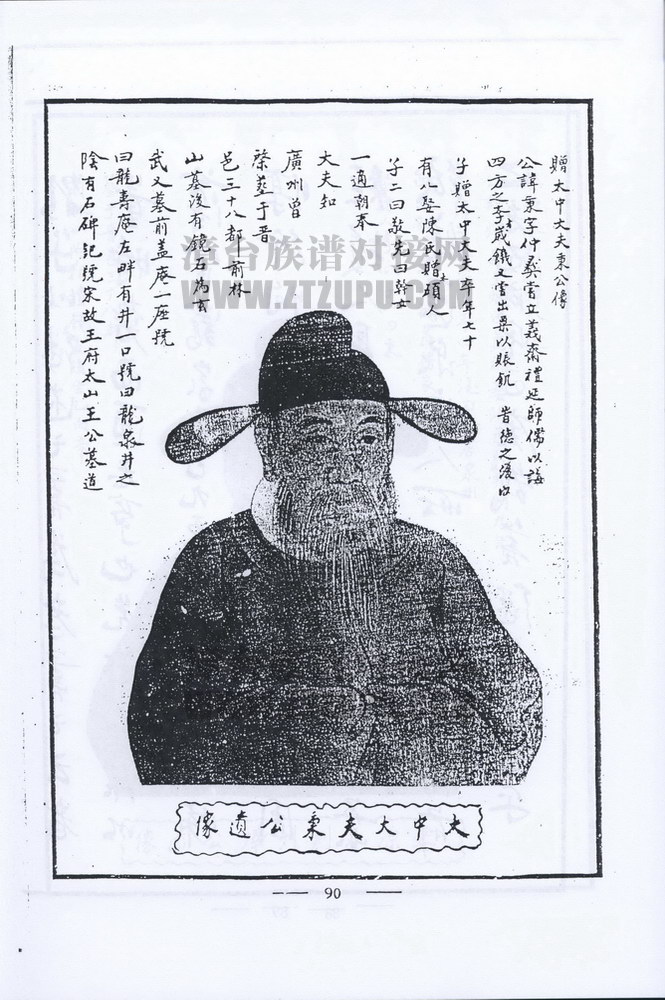 贈太中大夫秉公像
公諱秉字仲彝嘗立義齋禮延師儒以誨
四方之李歲鐵又嘗出粟以賑飢 昔德之後内
子贈太中大夫卒年七十
有八娶陳氏贈碩人
子二曰敬先曰幹女
一適朝奉
大夫知
廣州曾
榮葬于晋
邑三十八都 前林
山墓後有鏡石為玄
武又墓前蓋庵一座號
曰龍壽庵左畔有井一口號曰龍泉井之
陰有石碑記號宋故王府太山王公墓道
澶台族谱对接网
WWW.ZTZUPU.COM
太中大夫秉公遺像
90